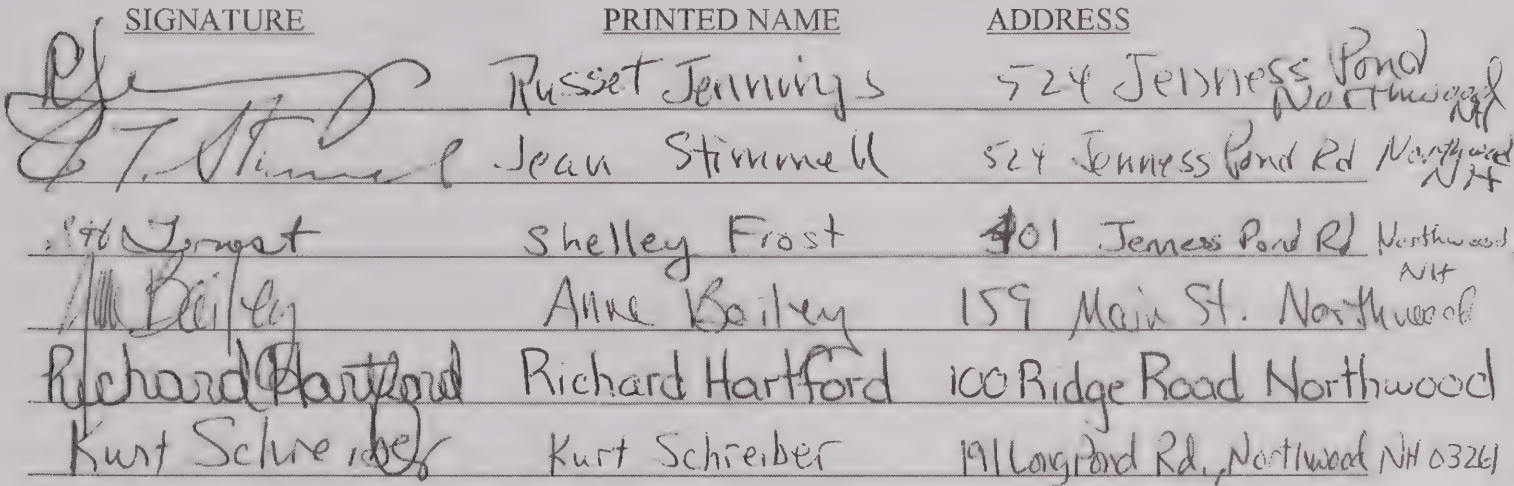 SIGNATURE PRINTED NAME ADDRESS
Russet Jennings 524 Jenness Pond Northwood NH
J T. Stimmel Jean Stimmell 524 Jenness Pond Rd Northwood NH
Shelley Frost 401 Jenness Pond Rd Northwood NH
Bailey Anne Bailey 159 Main St. Northwood
Richard Hartford Richard Hartford 100 Ridge Road Northwood
Kurt Schreiber Kurt Schreiber 191 Long Pond Rd., Northwood NH 03261